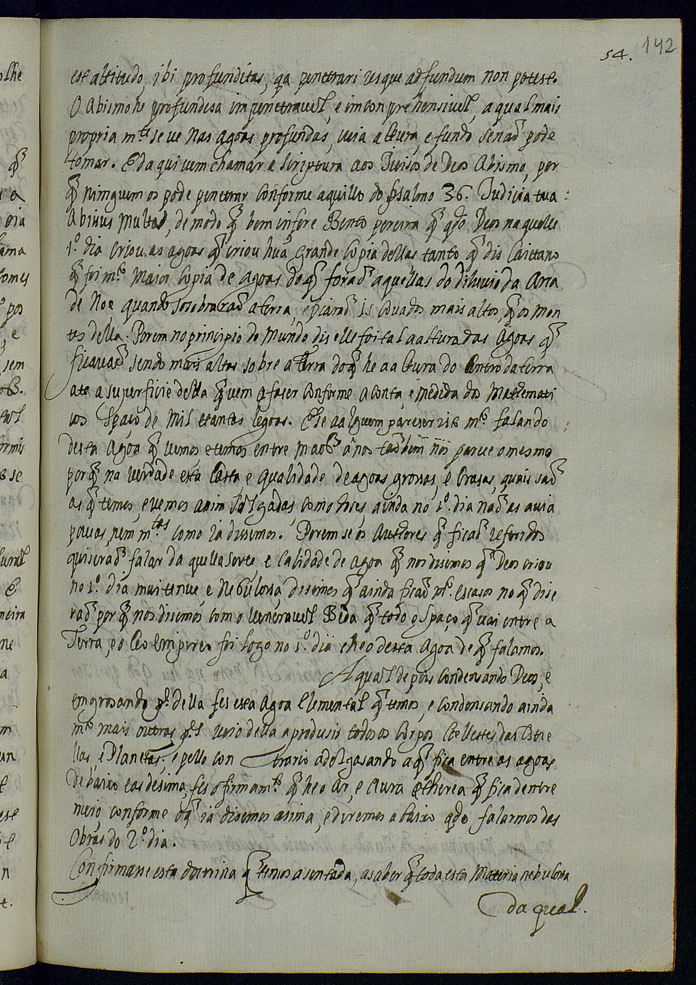 54. 142
est altitudo, ibi profunditas, qa penetrari usque ad fundum non potest.
O Abismo he profundesa impenetravel, e imconprehensivel, a qual mais
propria mte se ve nas agoas profundas, cuia altura, e fundo se naõ pode
tomar. E daqui vem chamar a scriptura aos Juisos de Deos Abismo, por
q̃ nimguem os pode penetrar conforme aquillo do psalmo 36. Judicia tua
Abissus Multa, de modo q̃ bem infere Bento pereira q̃ qdo Deos naquelle
1.º dia criou as agoas q̃ criou huã grande copia dellas tanto q̃ dis Caietano
q̃ foi mto maior copia de agoas do q̃ foraõ aquellas do diluvio da Arca
de Noe quando sosobraraõ a terra, e ficaraõ 15 covados mais altas, q̃ os mon
tes della. Porem no principio do Mundo dis elle foi tal a altura das Agoas q̃
ficavaõ sendo mais altas sobre a terra do q̃ he a altura do Centro da terra
ate a superficie della q̃ vem a faser conforme a conta, e medida dos Mathemati
cos spaço de mil e tantas legoas. E se a alguem parecer
mto falando
desta Agoa q̃ vemos, e temos entre maõs a nos taõbem nos parece o mesmo
porq̃ na verdade esta casta e qualidade de agoas grossas, e crasas, quais saõ
as q̃ temos, e vemos assim salgadas, como doces ainda no 1.º dia naõ as avia
poucas, nem mtas como ia dissemos. Porem se os Auctores q̃ ficaõ referidos
quiseraõ falar daquella sorte e calidade de agoa q̃ nos disemos q̃ Deos criou
no 1.º dia mui tenue, e nebulosa disemos q̃ ainda ficaõ mto escasos no q̃ dise
raõ porq̃ nos disemos com o veneravel Beda q̃ todo o spaço q̃ vai entre a
Terra, e o Ceo empireo foi logo no 1.º dia cheo desta Agoa de q̃ falamos.
A qual depois condensando Deos, e
emgrosando pte della fes esta Agoa elemental q̃ temos, e condensando ainda
mto mais outras ptes veio della a produsir todos os Corpos Celestes das Estre
llas, e Planetas; e pello contrario adelgasando a q̃ fica entre as agoas
de baixo e as de sima, fes o firmamto q̃ he o Ar, e Aura etherea q̃ fica dentre
meio conforme o q̃ ia disemos asima, e diremos a baixo qdo falarmos das
Obras do 2.º dia.
Confirmase esta doctrina q̃ temos asentada, a saber q̃ toda esta Materia nebulosa
da qual.